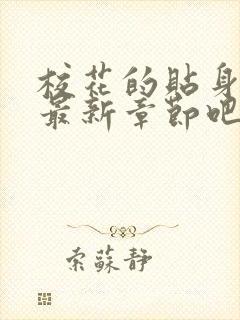 校花的貼身
最新章節吧
索蘇靜